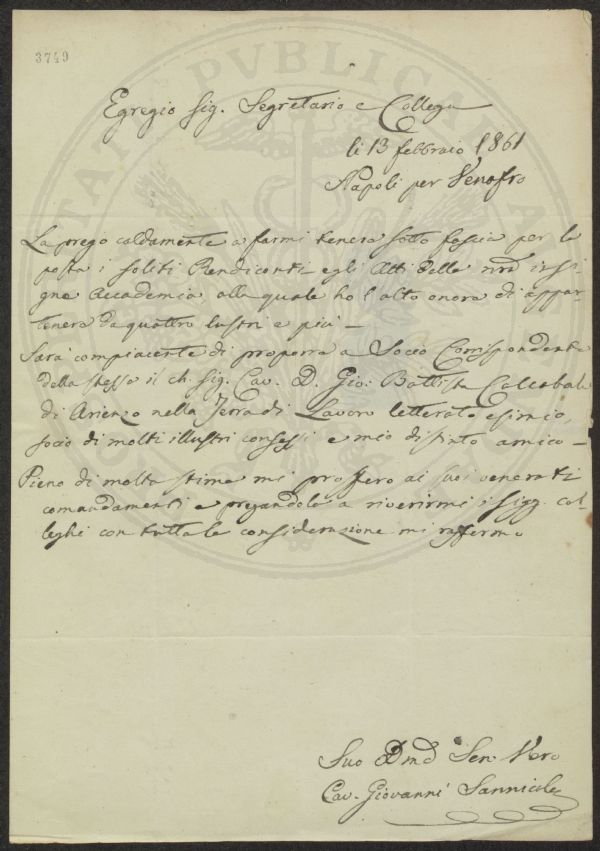 3749
Egregio Sig. Segretario e Collega
li 13 febbraio 1861
Napoli per Venafro
La prego caldamente a farmi tenere sotto fascia per la
posta i soliti Rendiconti e gli Atti della insi-
gne Accademia alla quale ho l'alto onore di appar-
tenere da quattro lustri e più —
Sarà compiacente di proporre a Socio Corrispondente
della stessa il ch. Sig. Cav. D. Gio: Battista
di Arienzo nella Terra di Lavoro letterato esimio,
socio di molti illustri consessi e mio distinto amico —
Pieno di molta stima mi proffero ai suoi venerati
comandamenti e pregandola a riverirmi i sigg. col-
leghi con tutta le considerazione mi raffermo
Suo Dmo Ser. Vero
Cav. Giovanni Sannicola